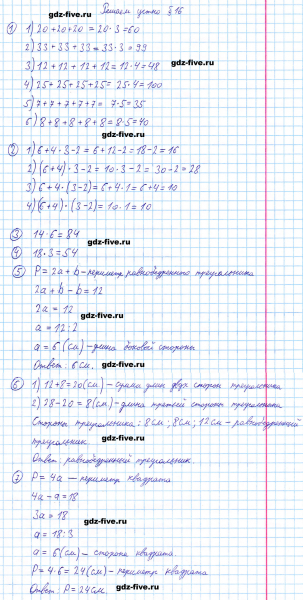 gdz-five.ru
Решаем устно § 16
1 1) 20 + 20 + 20 = 20 · 3 = 60
gdz-five.ru
2) 33 + 33 + 33 = 33 · 3 = 99
3) 12 + 12 + 12 + 12 = 12 · 4 = 48
gdz-five.ru
4) 25 + 25 + 25 + 25 = 25 · 4 = 100
5) 7 + 7 + 7 + 7 + 7 = 7 · 5 = 35
gdz-five.ru
6) 8 + 8 + 8 + 8 + 8 = 8 · 5 = 40
gdz-five.ru
2 1) 6 + 4 · 3 - 2 = 6 + 12 - 2 = 18 - 2 = 16
2) (6 + 4) · 3 - 2 = 10 · 3 - 2 = 30 - 2 = 28
gdz-five.ru
3) 6 + 4 · (3 - 2) = 6 + 4 · 1 = 6 + 4 = 10
4) (6 + 4) · (3 - 2) = 10 · 1 = 10
gdz-five.ru
3 14 · 6 = 84
gdz-five.ru
4 18 · 3 = 54
5 P = 2a + b - периметр равнобедренного треугольника
2a + b - b = 12
gdz-five.ru
2a = 12
gdz-five.ru
a = 12 : 2
a = 6 (см) - длина боковой стороны
gdz-five.ru
Ответ: 6 см.
6 1) 12 + 8 = 20 (см) - сумма длин двух сторон треугольника
2) 28 - 20 = 8 (см) - длина третьей стороны треугольника
gdz-five.ru
Стороны треугольника: 8 см; 8 см; 12 см - равнобедренный
треугольник
gdz-five.ru
Ответ: равнобедренный треугольник.
7 P = 4a - периметр квадрата
gdz-five.ru
4a - a = 18
3a = 18
gdz-five.ru
a = 18 : 3
a = 6 (см) - сторона квадрата.
gdz-five.ru
P = 4 · 6 = 24 (см) - периметр квадрата
Ответ: P = 24 см.
gdz-five.ru